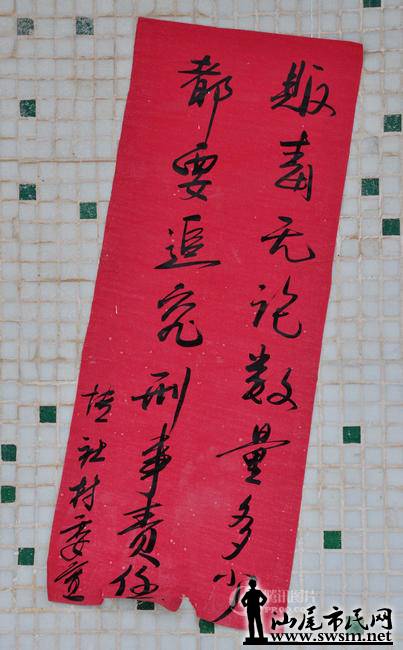 贩毒无论数量多少
都要追究刑事责任
社村委宣
腾讯图片
汕尾市民网
www.swsm.net